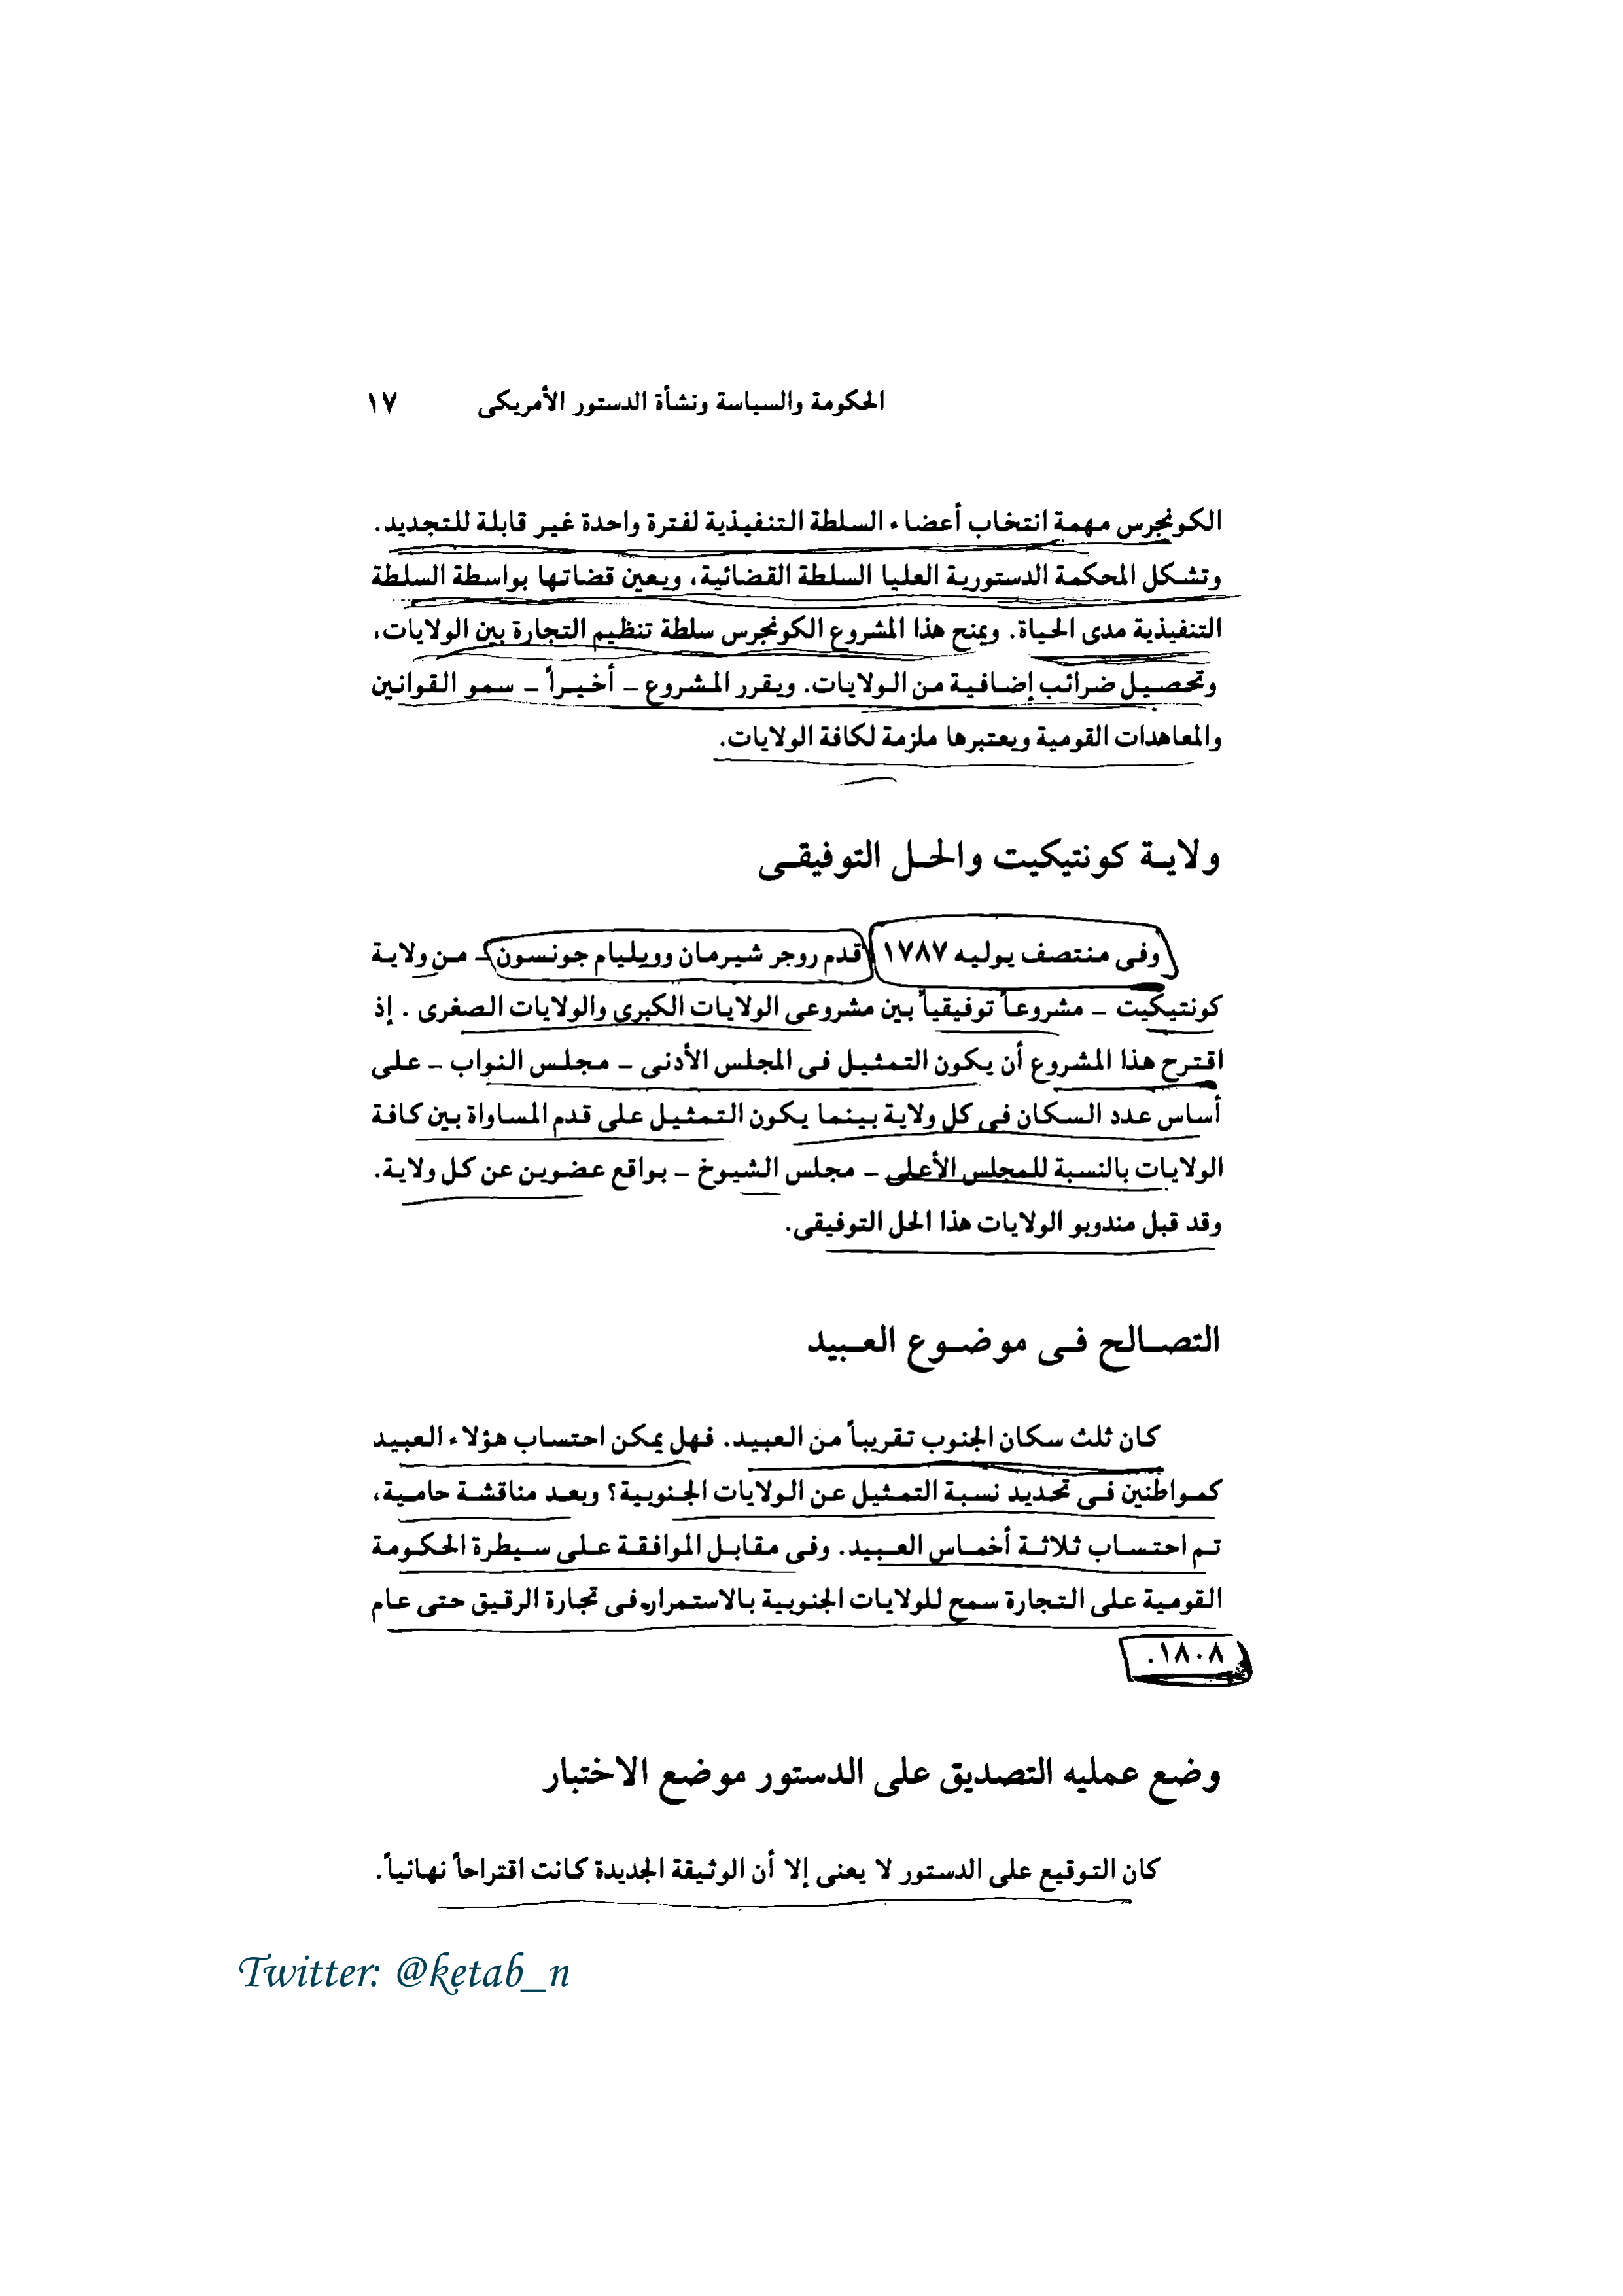 الحكومة والسياسة ونشأة الدستور الأمريكى ١٧
الكونجرس مهمة انتخاب أعضاء السلطة التنفيذية لفترة واحدة غير قابلة للتجديد.
وتشكل المحكمة الدستورية العليا السلطة القضائية، ويعين قضاتها بواسطة السلطة
التنفيذية مدى الحياة. ويمنح هذا المشروع الكونجرس سلطة تنظيم التجارة بين الولايات،
وتحصيل ضرائب إضافية من الولايات. ويقرر المشروع – أخيراً – سمو القوانين
والمعاهدات القومية ويعتبرها ملزمة لكافة الولايات.
ولاية كونتيكيت والحل التوفيقى
وفى منتصف يوليه ١٧٨٧ قدم روجر شيرمان وويليام جونسون – من ولاية
كونتيكيت – مشروعاً توفيقياً بين مشروعى الولايات الكبرى والولايات الصغرى . إذ
اقترح هذا المشروع أن يكون التمثيل فى المجلس الأدنى – مجلس النواب – على
أساس عدد السكان فى كل ولاية بينما يكون التمثيل على قدم المساواة بين كافة
الولايات بالنسبة للمجلس الأعلى – مجلس الشيوخ – بواقع عضوين عن كل ولاية.
وقد قبل مندوبو الولايات هذا الحل التوفيقى.
التصالح فى موضوع العبيد
كان ثلث سكان الجنوب تقريباً من العبيد. فهل يمكن احتساب هؤلاء العبيد
كمواطنين فى تحديد نسبة التمثيل عن الولايات الجنوبية؟ وبعد مناقشة حامية،
تم احتساب ثلاثة أخماس العبيد. وفى مقابل الموافقة على سيطرة الحكومة
القومية على التجارة سمح للولايات الجنوبية بالاستمرار فى تجارة الرقيق حتى عام
١٨٠٨.
وضع عمليه التصديق على الدستور موضع الاختبار
كان التوقيع على الدستور لا يعنى إلا أن الوثيقة الجديدة كانت اقتراحاً نهائياً.
Twitter: @ketab_n